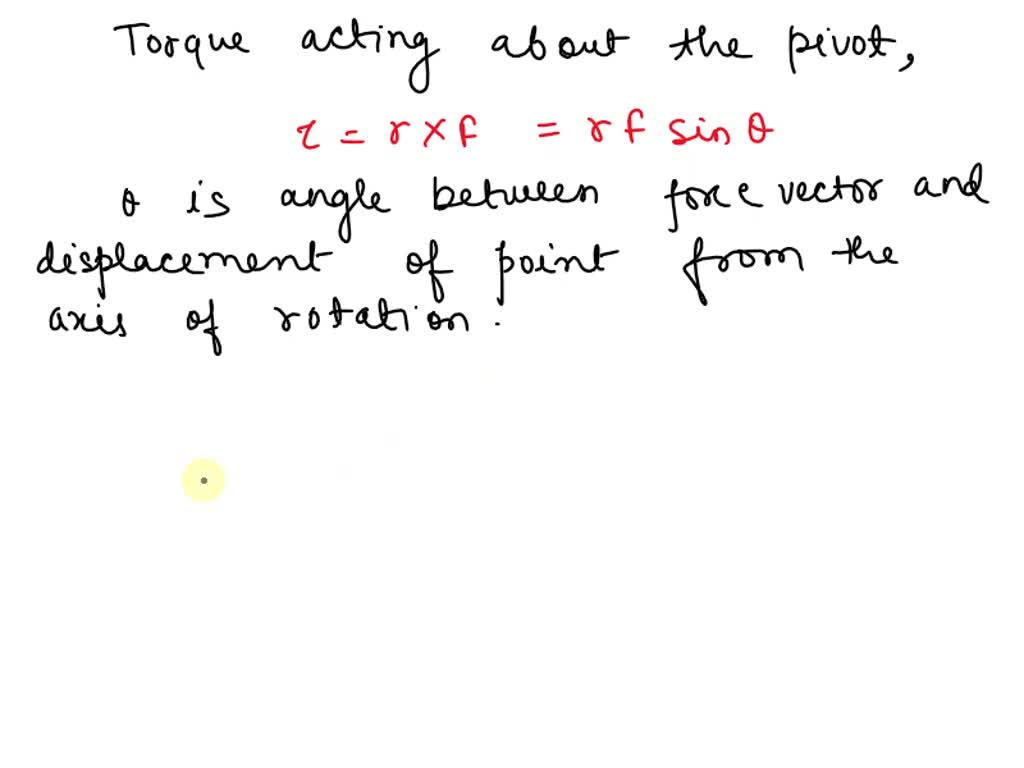 Torque acting about the pivot,
τ = r × F = r F sin θ
θ is angle between force vector and
displacement of point from the
axis of rotation.